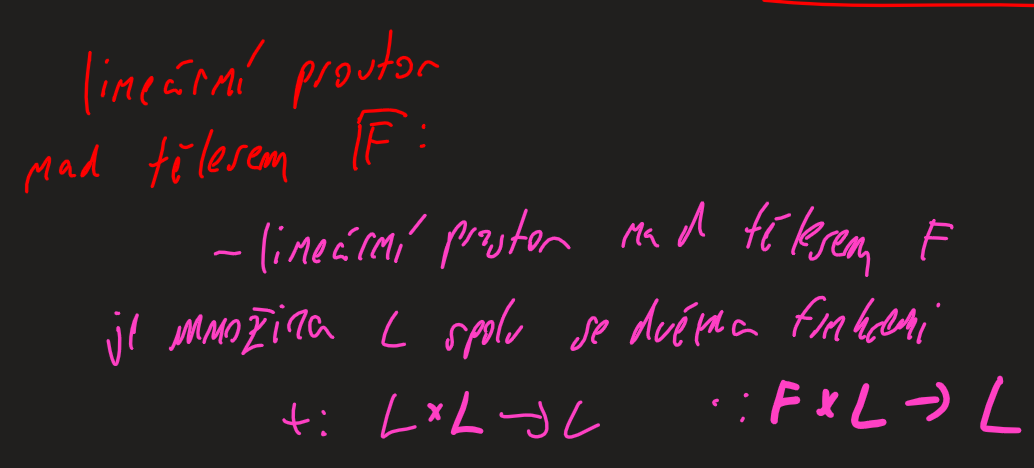 lineární prostor
nad tělesem F:
- lineární prostor nad tělesem F
je množina L spolu se dvěma funkcemi
+: L×L → L ·: F×L → L